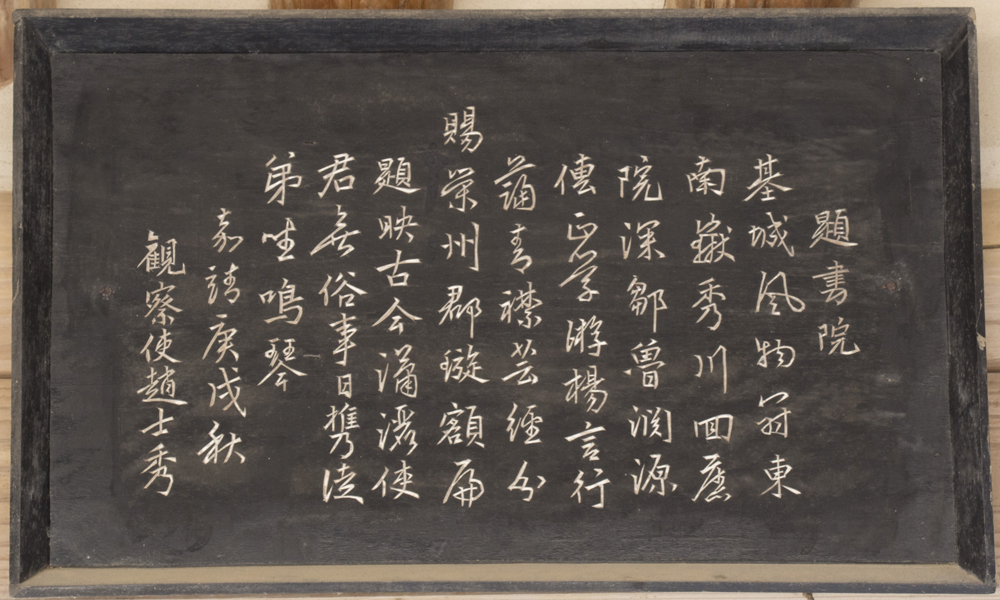 題書院
基城風物冠東
南嶽秀川回鹿
院深鄒魯淵源
傳正学游楊言行
藹青襟芸經分
賜榮州郡璇額扁
題映古今瀟灑使
君無俗事日携徒
弟坐鳴琴
嘉靖庚戌秋
観察使趙士秀